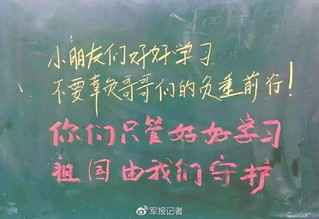 小朋友们好好学习
不要辜负哥哥们的负重前行!
你们只管好好学习
祖国由我们守护
军报记者